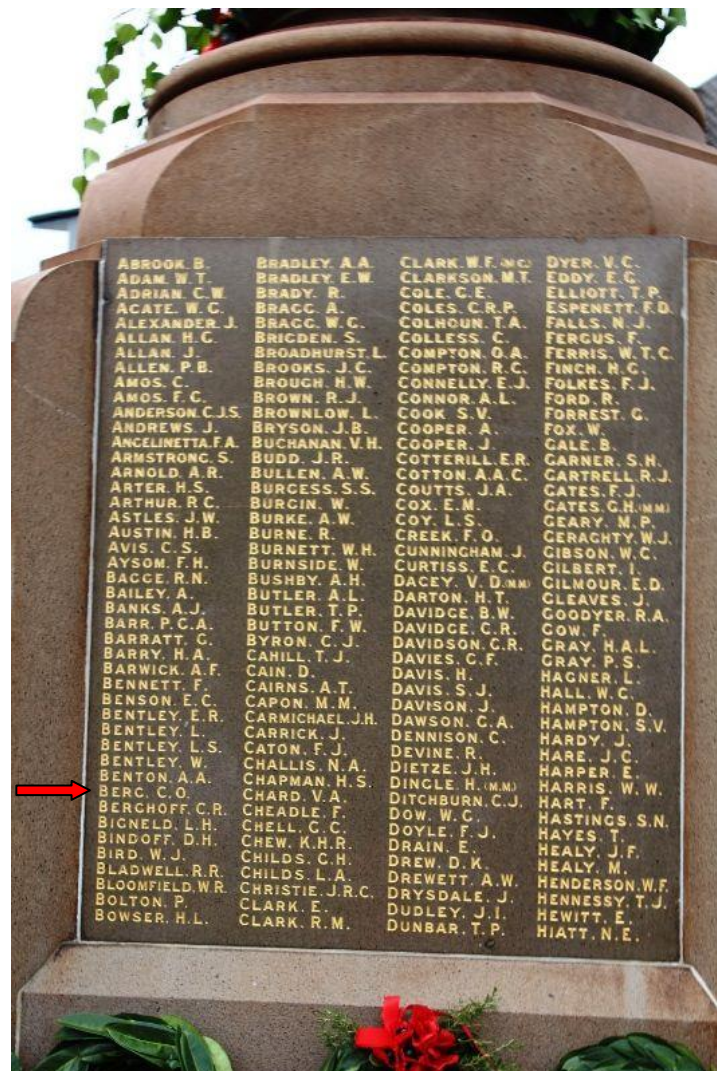 ABROOK. B.
ADAM. W. T.
ADRIAN. C. W.
AGATE. W. G.
ALEXANDER. J.
ALLAN. H. G.
ALLAN. J.
ALLEN. P. B.
AMOS. C.
AMOS. F. G.
ANDERSON. C. J. S.
ANDREWS. J.
ANGELINETTA. F. A.
ARMSTRONG. S.
ARNOLD. A. R.
ARTER. H. S.
ARTHUR. R. C.
ASTLES. J. W.
AUSTIN. H. B.
AVIS. C. S.
AYSOM. F. H.
BAGGE. R. N.
BAILEY. A.
BANKS. A. J.
BARR. P. G. A.
BARRATT. G.
BARRY. H. A.
BARWICK. A. F.
BENNETT. F.
BENSON. E. C.
BENTLEY. E. R.
BENTLEY. L.
BENTLEY. L. S.
BENTLEY. W.
BENTON. A. A.
BERG. G. O.
BERGHOFF. C. R.
BIGNELD. L. H.
BINDOFF. D. H.
BIRD. W. J.
BLADWELL. R. R.
BLOOMFIELD. W. R.
BOLTON. P.
BOWSER. H. L.
BRADLEY. A. A.
BRADLEY. E. W.
BRADY. R.
BRAGG. A.
BRAGG. W. G.
BRIGDEN. S.
BROADHURST. L.
BROOKS. J. C.
BROUGH. H. W.
BROWN. R. J.
BROWNLOW. L.
BRYSON. J. B.
BUCHANAN. V. H.
BUDD. J. R.
BULLEN. A. W.
BURGESS. S. S.
BURGIN. W.
BURKE. A. W.
BURNE. R.
BURNETT. W. H.
BURNSIDE. W.
BUSHBY. A. H.
BUTLER. A. L.
BUTLER. T. P.
BUTTON. F. W.
BYRON. C. J.
CAHILL. T. J.
CAIN. D.
CAIRNS. A. T.
CAPON. M. M.
CARMICHAEL. J. H.
CARRICK. J.
CATON. F. J.
CHALLIS. N. A.
CHAPMAN. H. S.
CHARD. V. A.
CHEADLE. F.
CHELL. G. C.
CHEW. K. H. R.
CHILDS. G. H.
CHILDS. L. A.
CHRISTIE. J. R. C.
CLARK. E.
CLARK. R. M.
CLARK. W. F. (M.C.)
CLARKSON. M. T.
COLE. C. E.
COLES. C. R. P.
COLHOUN. T. A.
COLLESS. C.
COMPTON. O. A.
COMPTON. R. C.
CONNELLY. E. J.
CONNOR. A. L.
COOK. S. V.
COOPER. A.
COOPER. J.
COTTERILL. E. R.
COTTON. A. A. C.
COUTTS. J. A.
COX. E. M.
COY. L. S.
CREEK. F. O.
CUNNINGHAM. J.
CURTISS. E. C.
DACEY. V. D. (M.M.)
DARTON. H. T.
DAVIDGE. B. W.
DAVIDGE. C. R.
DAVIDSON. C. R.
DAVIES. G. F.
DAVIS. H.
DAVIS. S. J.
DAVISON. J.
DAWSON. G. A.
DENNISON. C.
DEVINE. R.
DIETZE. J. H.
DINGLE. H. (M.M.)
DITCHBURN. C. J.
DOW. W. G.
DOYLE. F. J.
DRAIN. E.
DREW. D. K.
DREWETT. A. W.
DRYSDALE. J.
DUDLEY. J. I.
DUNBAR. T. P.
DYER. V. C.
EDDY. E. C.
ELLIOTT. T. P.
ESPENETT. F. D.
FALLS. N. J.
FERGUS. F.
FERRIS. W. T. C.
FINCH. H. G.
FOLKES. F. J.
FORD. R.
FORREST. G.
FOX. W.
GALE. B.
GARNER. S. H.
GARTRELL. R. J.
GATES. F. J.
GATES. G. H. (M.M.)
GEARY. M. P.
GERAGHTY. W. J.
GIBSON. W. C.
GILBERT. I.
GILMOUR. E. D.
GLEAVES. J.
GOODYER. R. A.
GOW. F.
GRAY. H. A. L.
GRAY. P. S.
HAGNER. L.
HALL. W. C.
HAMPTON. D.
HAMPTON. S. V.
HARDY. J.
HARE. J. C.
HARPER. E.
HARRIS. W. W.
HART. F.
HASTINGS. S. N.
HAYES. T.
HEALY. J. F.
HEALY. M.
HENDERSON. W. F.
HENNESSY. T. J.
HEWITT. E.
HIATT. N. E.